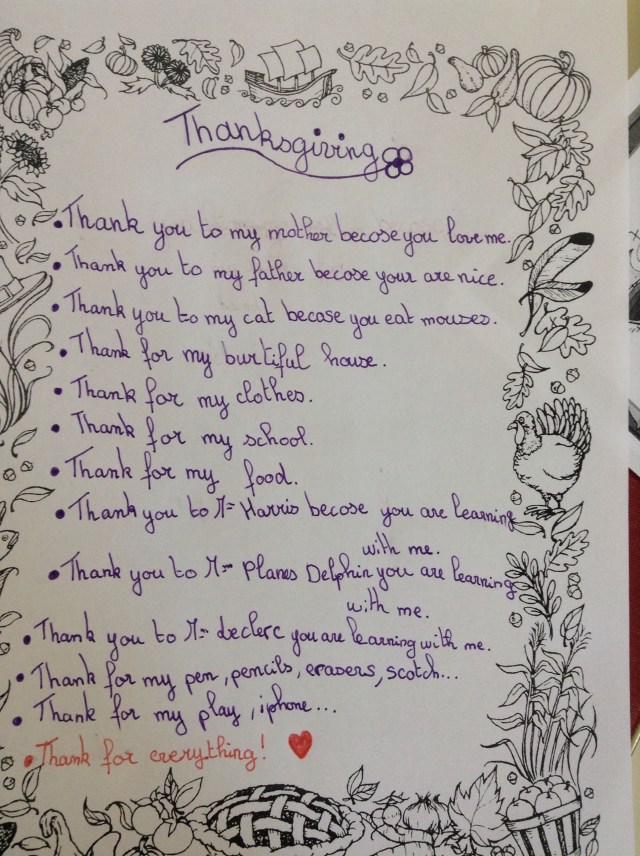 Thanksgiving
• Thank you to my mother becose you love me.
• Thank you to my father becose your are nice.
• Thank you to my cat becase you eat mouzes.
• Thank for my burtiful house.
• Thank for my clothes.
• Thank for my school.
• Thank for my food.
• Thank you to M= Harris becose you are learning
with me.
• Thank you to M= Planes Delphin you are learning
with me.
• Thank you to M= declerc you are learning with me.
• Thank for my pen, pencils, erasers, scotch...
• Thank for my play, iphone...
• Thank for everything!